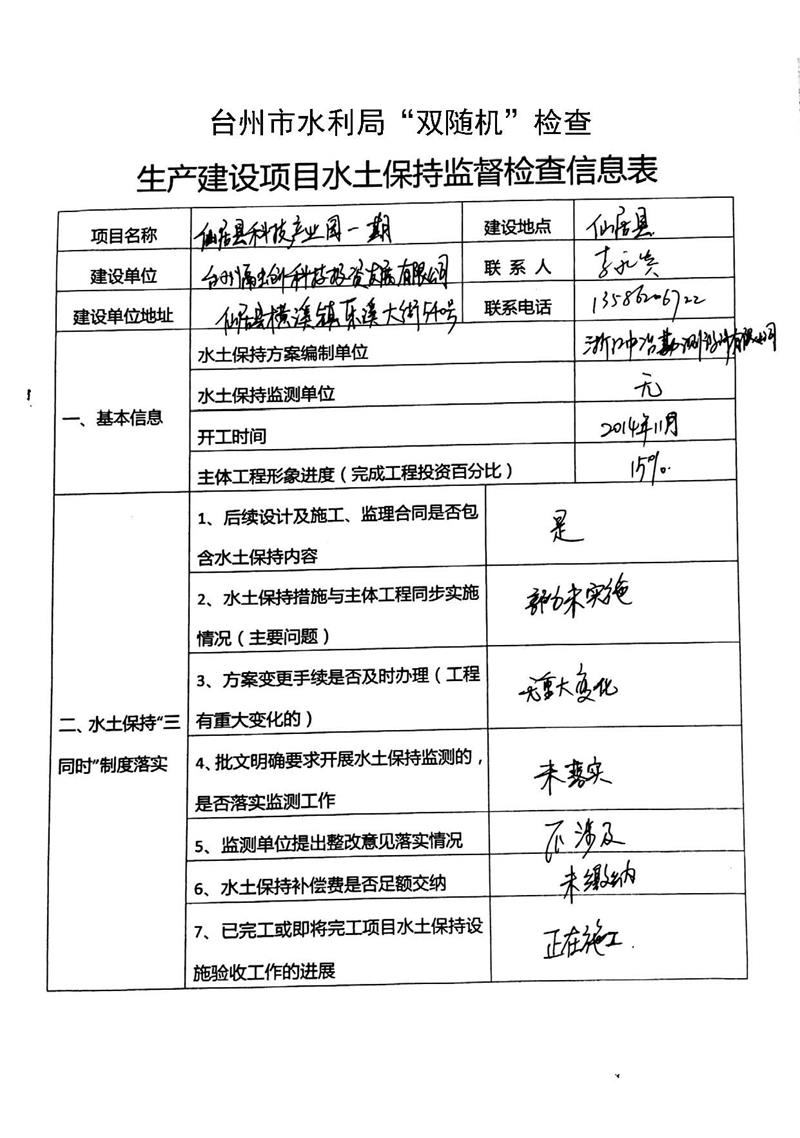 台州市水利局“双随机”检查
生产建设项目水土保持监督检查信息表
项目名称 仙居县科技产业园一期 建设地点 仙居县
建设单位 科技投资发展有限公司 联系人 李
建设单位地址 仙居县横溪镇乐溪大街540号 联系电话 13586206722
水土保持方案编制单位 浙江中冶勘测设计有限公司
水土保持监测单位 无
一、基本信息
开工时间 2014年11月
主体工程形象进度（完成工程投资百分比） 15%
1、后续设计及施工、监理合同是否包 是
含水土保持内容
2、水土保持措施与主体工程同步实施 部分未实施
情况（主要问题）
3、方案变更手续是否及时办理（工程 无重大变化
有重大变化的）
二、水土保持“三
同时”制度落实
4、批文明确要求开展水土保持监测的， 未落实
是否落实监测工作
5、监测单位提出整改意见落实情况 不涉及
6、水土保持补偿费是否足额交纳 未缴纳
7、已完工或即将完工项目水土保持设 正在施工.
施验收工作的进展